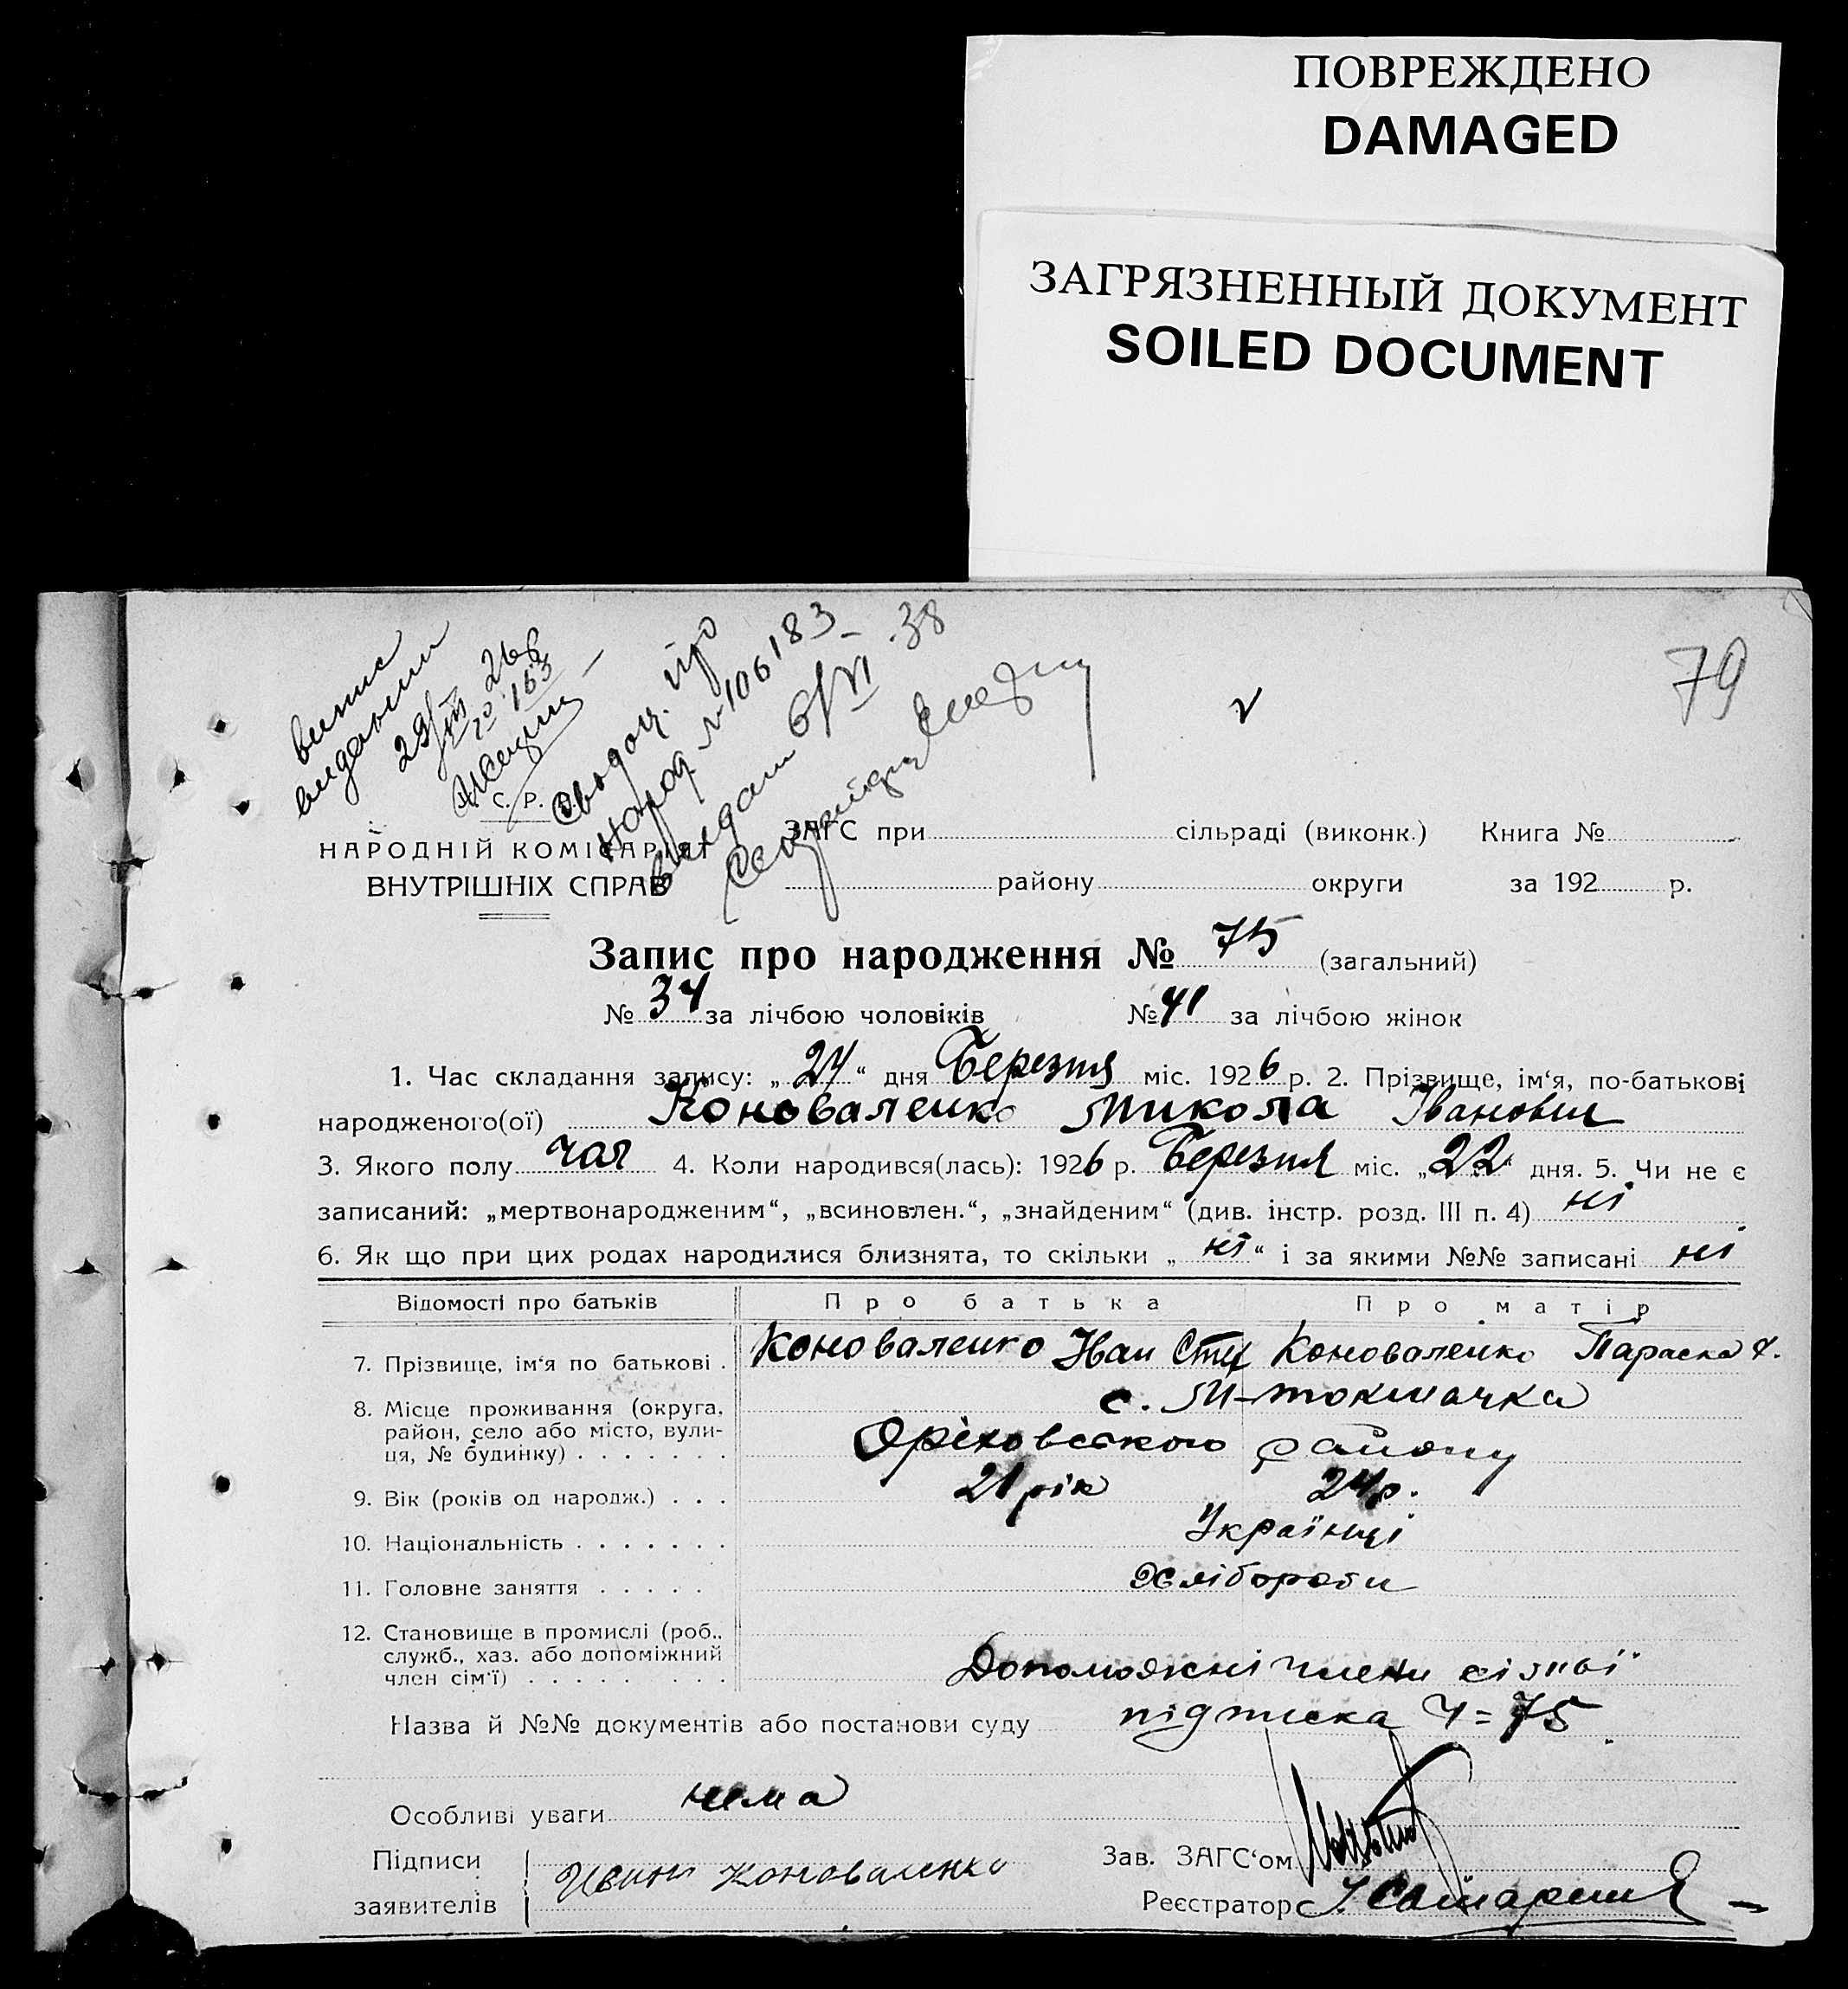 ПОВРЕЖДЕНО
DAMAGED
ЗАГРЯЗНЕННЫЙ ДОКУМЕНТ
SOILED DOCUMENT
79
випис
видании
29/III 26р
Свидоц. про
народ. № 106183
видано 6/VI-38
С. Р.
НАРОДНІЙ КОМІСАРІЯТ
ВНУТРІШНІХ СПРАВ
ЗАГС при сільраді (виконк.) Книга №
району округи за 192 р.
Запис про народження № 75 (загальний)
№ 34 за лічбою чоловіків № 41 за лічбою жінок
1. Час складання запису: „24“ дня Березня міс. 1926 р. 2. Прізвище, ім‘я, по-батькові
народженого(ої) Коноваленко Микола Іванович
3. Якого полу чол 4. Коли народився(лась): 1926 р. Березня міс. „22“ дня. 5. Чи не є
записаний: „мертвонародженим“, „всиновлен.“, „знайденим“ (див. інстр. розд. III п. 4) ні
6. Як що при цих родах народилися близнята, то скільки „ні“ і за якими №№ записані ні
Відомості про батьків Про батька Про матір
7. Прізвище, ім‘я по батькові . Коноваленко Іван Коноваленко Параска
8. Місце проживання (округа, с. М-токмачка
район, село або місто, вули-
ця, № будинку) . . . . . . . Оріховського району
9. Вік (років од народж.) . . . 21 рік 24р.
10. Національність . . . . . . . Українці
11. Головне заняття . . . . . Хлібороби
12. Становище в промислі (роб.,
служб., хаз. або допоміжний
член сім‘ї) . . . . . . . . . Допоможні члени сімьї
Назва й №№ документів або постанови суду підписка Ч=75
Особливі уваги нема
Підписи
заявителів Иван Коноваленко
Зав. ЗАГС‘ом
Реєстратор